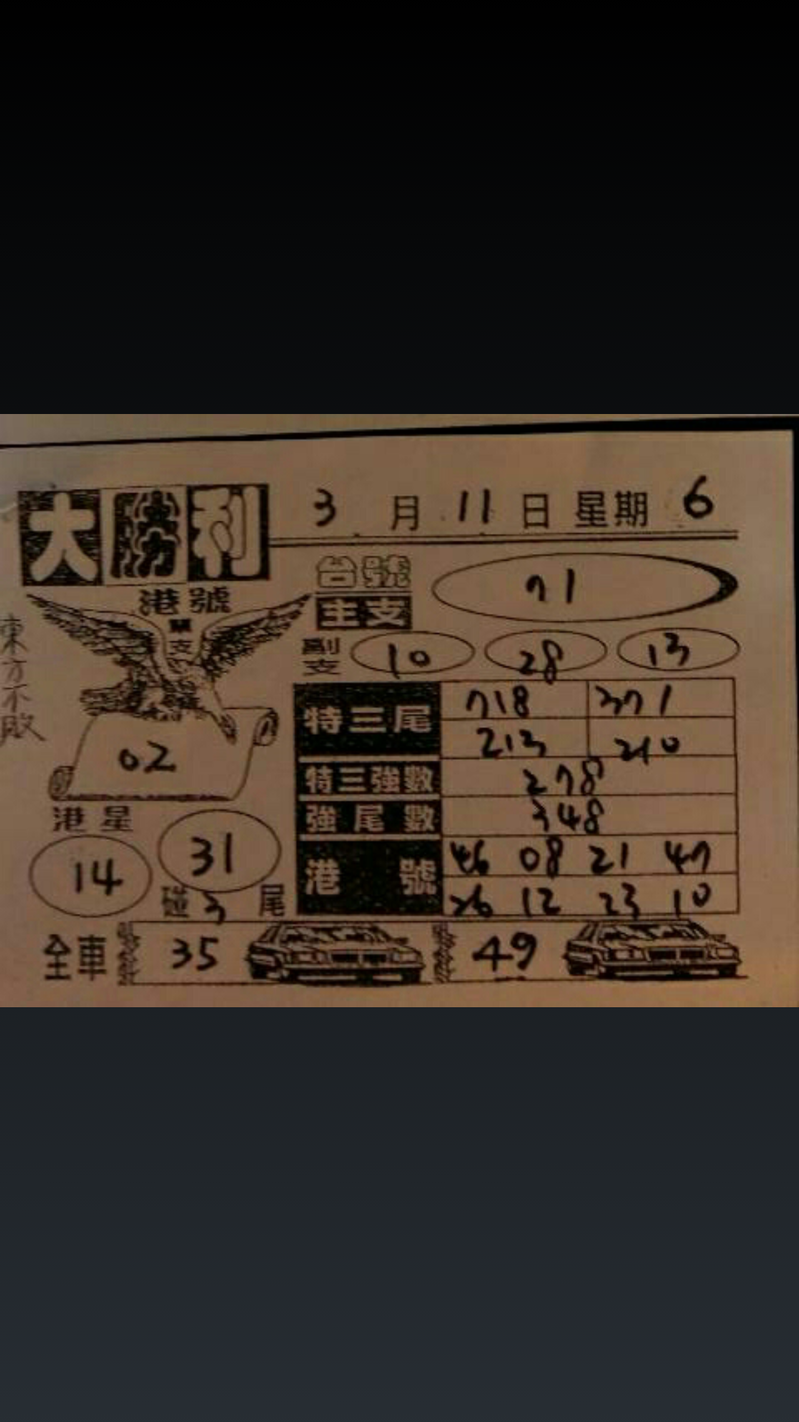 大勝利
3月11日星期6
港號
單支
02
台號
主支
71
副支
10 28 13
東方不敗
特三尾
718 371
213 210
特三強數
278
強尾數
348
港星
14 31
碰3尾
港號
46 08 21 47
26 12 23 10
全車 35 49